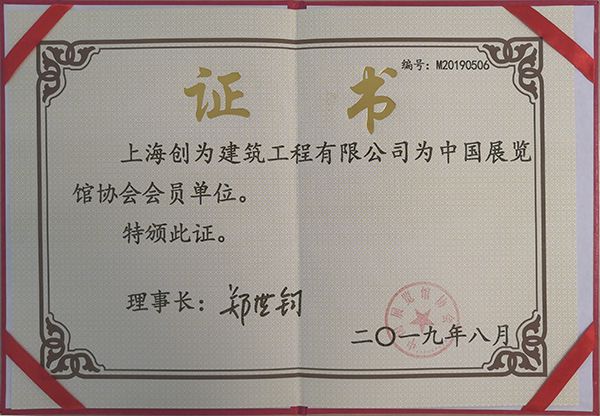 编号：M20190506
证 书
上海创为建筑工程有限公司为中国展览
馆协会会员单位。
特颁此证。
理事长：郑世钧
中国展览馆协会
二〇一九年八月